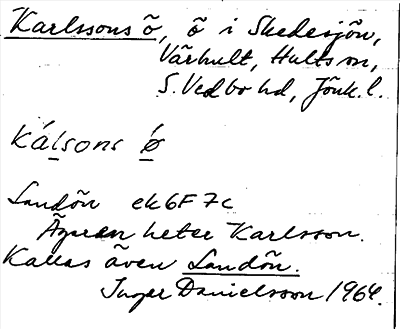 Karlssons ö, ö i Skedesjön,
Värhult, Hults sn,
S. Vedbo hd, Jönk. l.
Kálsons ǿ
Landön ek 6F 7c
Ägaren heter Karlsson.
Kallas även Landön.
Inger Danielsson 1964.